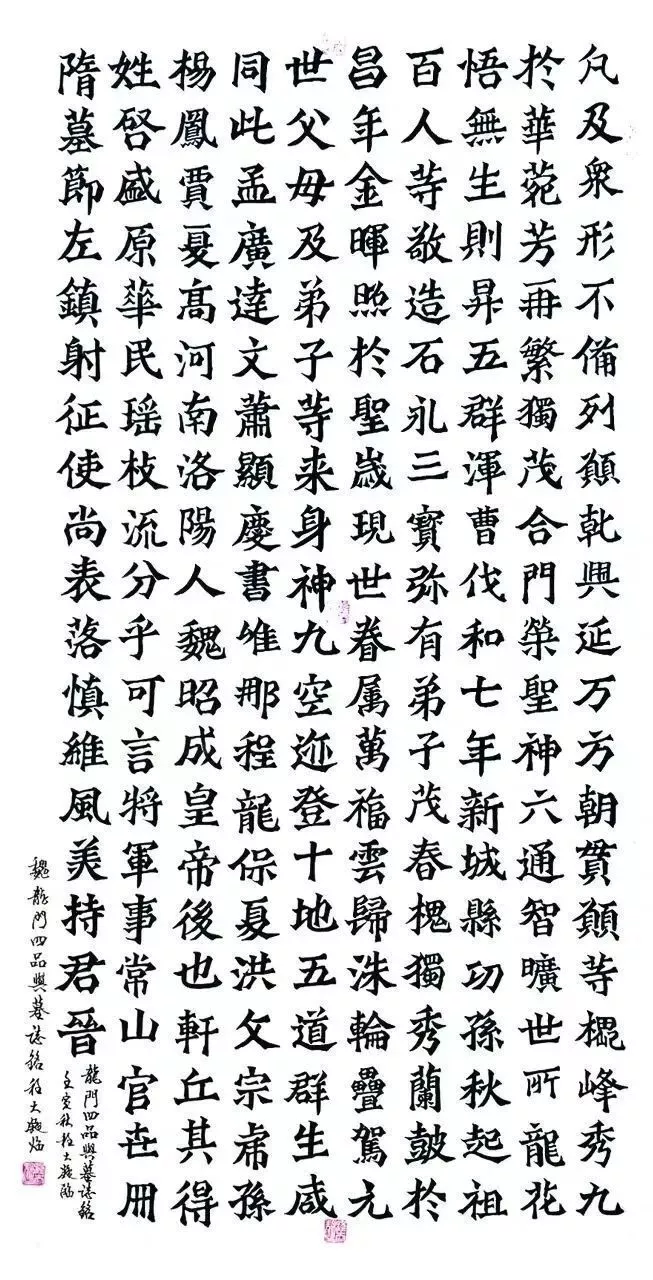 凢及衆形不備列願乾興延万方朝貫願等榥峰秀九
於華菀芳再繁獨茂合門榮聖神六通智曠世所龍花
悟無生則昇五群渾曹伐和七年新城縣功孫秋起祖
百人等敬造石永三寳弥有弟子茂春槐獨秀蘭鼓於
昌年金暉照於聖嵗現世眷属萬福雲歸洙輪疊駕元
世父母及弟子等来身神九空迩登十地五道群生咸
同此孟廣達文蕭顯慶書唯那程龍保夏洪文宗席孫
楊鳳賈夏髙河南洛陽人魏昭成皇帝後也軒丘其得
姓啓盛原華民瑶枝流分乎可言將軍事常山官世冊
隋墓節左鎮射征使尚表落慎維風美持君晉
龍門四品與墓誌銘
壬寅秋程大凝臨
魏龍門四品與墓誌銘程大凝臨